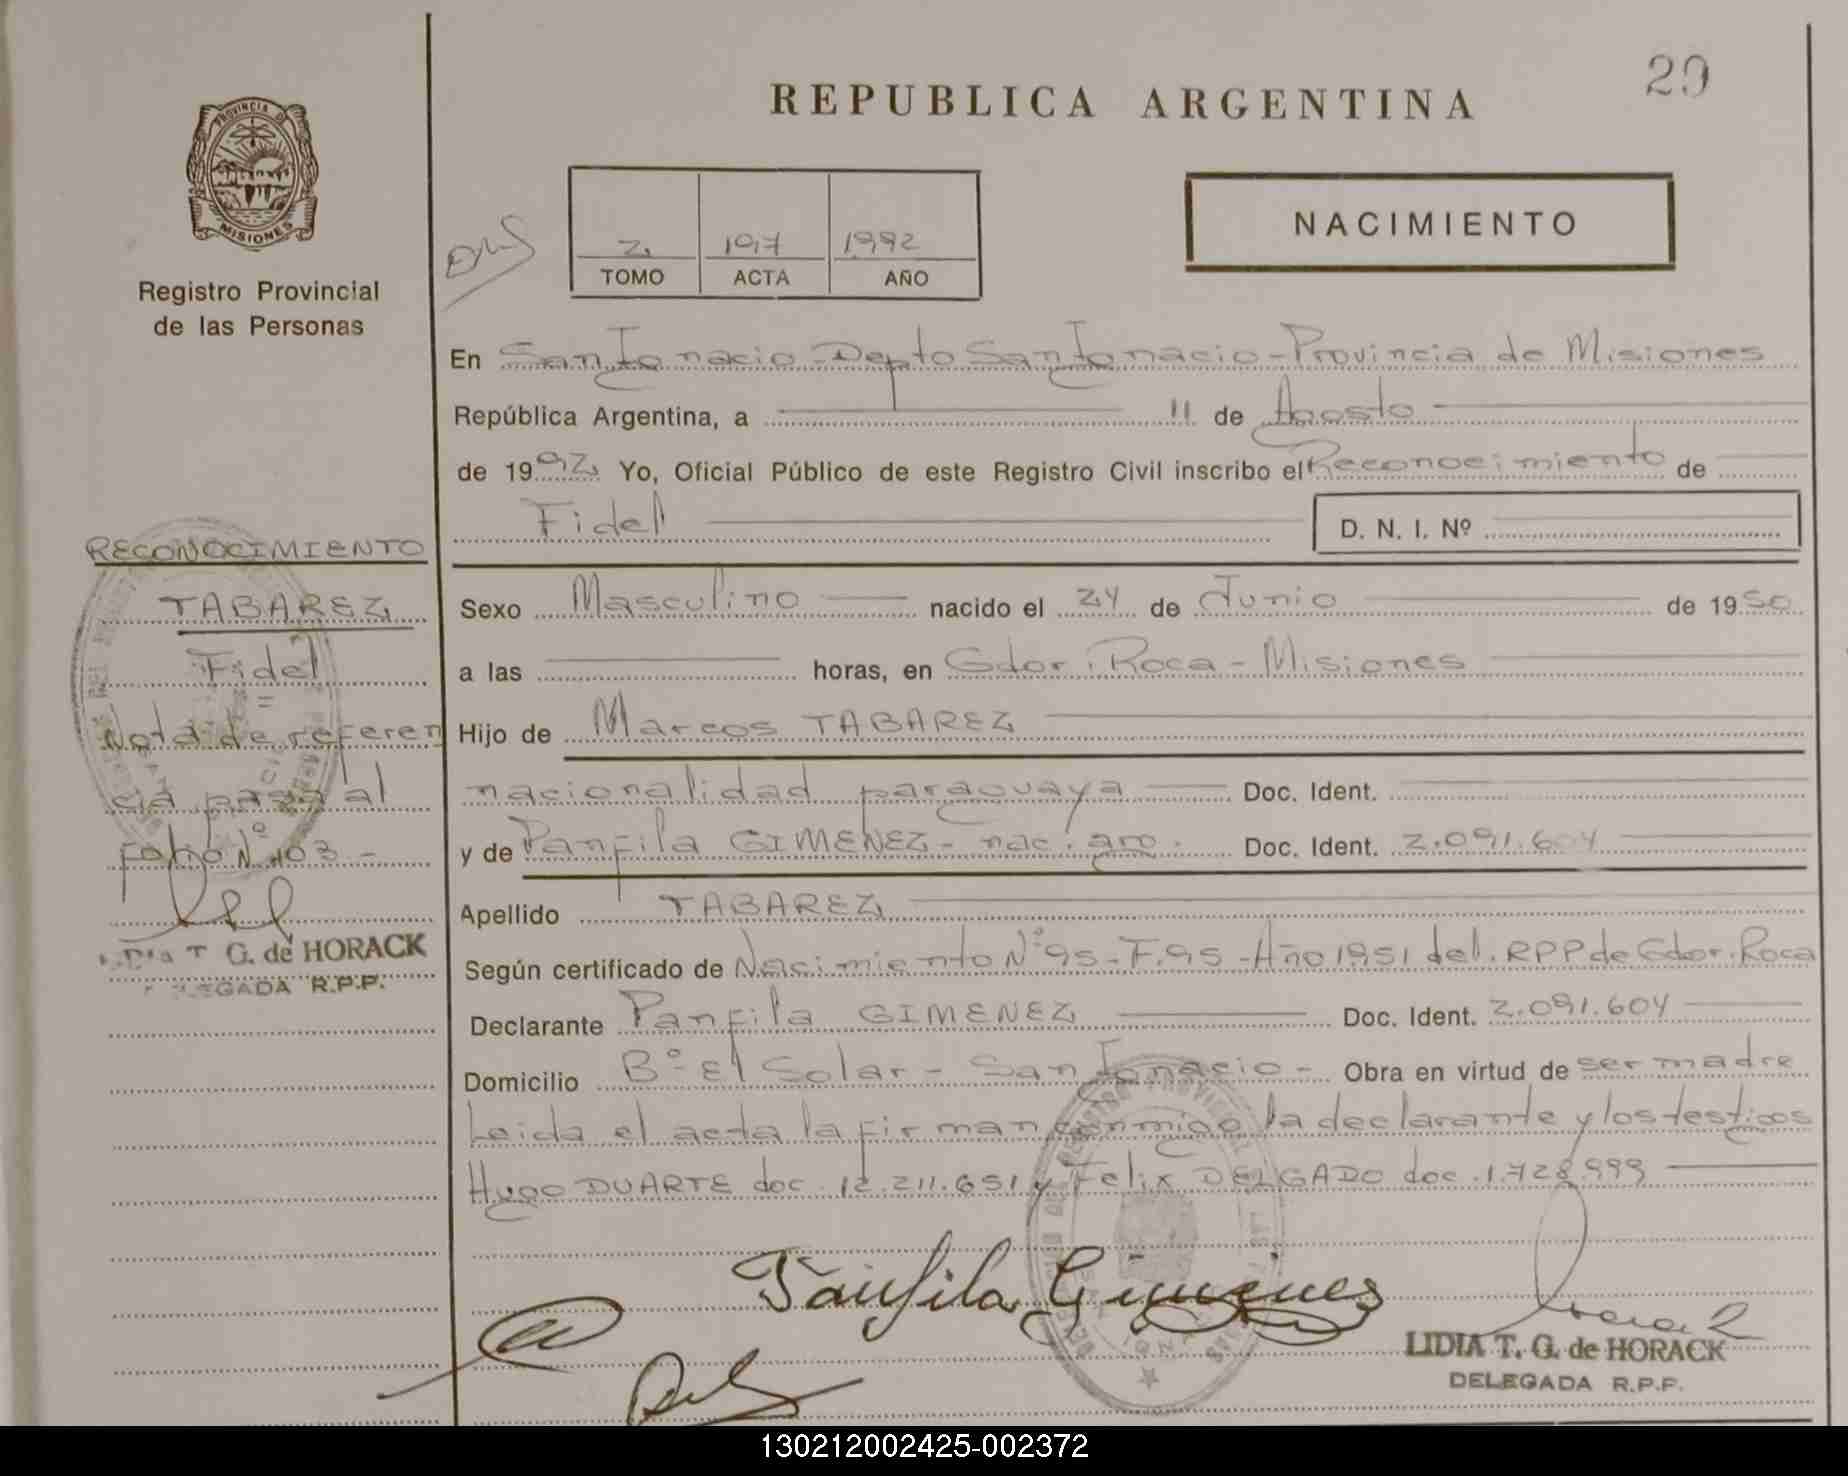 29
REPUBLICA ARGENTINA
PROVINCIA DE
MISIONES
Registro Provincial
de las Personas
2 197 1992
TOMO ACTA AÑO
NACIMIENTO
En San Ignacio - Depto San Ignacio - Provincia de Misiones
República Argentina, a 11 de Agosto
de 1992 Yo, Oficial Público de este Registro Civil inscribo el Reconocimiento de
Fidel D. N. I. Nº
Sexo Masculino nacido el 24 de Junio de 1950
a las horas, en Gdor. Roca - Misiones
Hijo de Marcos TABAREZ
nacionalidad paraguaya Doc. Ident.
y de Panfila GIMENEZ - nac. arg. Doc. Ident. 2.091.604
Apellido TABAREZ
Según certificado de Nacimiento Nº 95 - F. 95 - Año 1951 del. RPP de Gdor. Roca
Declarante Panfila GIMENEZ Doc. Ident. 2.091.604
Domicilio Bº El Solar - San Ignacio - Obra en virtud de ser madre
Leida el acta la firman conmigo la declarante y los testigos
Hugo DUARTE doc. 12.211.651 y Felix DELGADO doc. 1.728.999
RECONOCIMIENTO
TABAREZ
Fidel
Nota de referen
cia pasa al
Folio Nº 103 -
T G. de HORACK
DELEGADA R.P.P.
Panfila Gimenes
LIDIA T. G. de HORACK
DELEGADA R.P.P.
130212002425-002372